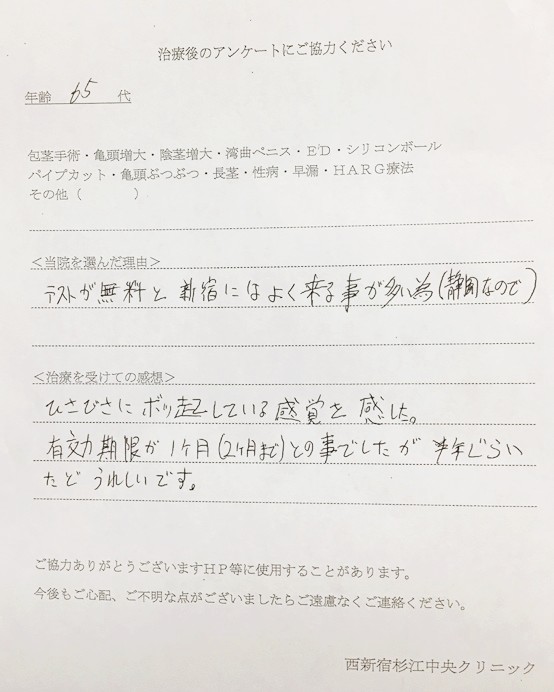 治療後のアンケートにご協力ください
年齢 65 代
包茎手術・亀頭増大・陰茎増大・湾曲ペニス・ED・シリコンボール
パイプカット・亀頭ぶつぶつ・長茎・性病・早漏・HARG療法
その他（　　　）
＜当院を選んだ理由＞
テストが無料と新宿にはよく来る事が多い為(静岡なので)
＜治療を受けての感想＞
ひさびさにボッ起している感覚を感した。
有効期限が1ケ月(2ケ月まで)との事でしたが半年ぐらい
たとうれしいです。
ご協力ありがとうございますHP等に使用することがあります。
今後もご心配、ご不明な点がございましたらご遠慮なくご連絡ください。
西新宿杉江中央クリニック